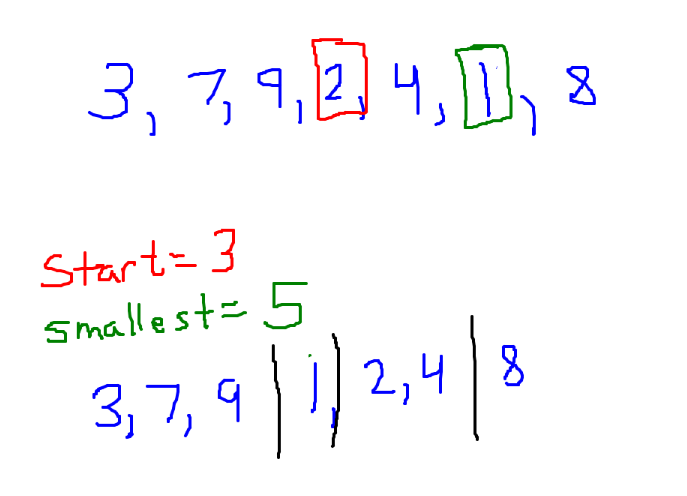 3, 7, 9, 2, 4, 1, 8
start = 3
smallest = 5
3, 7, 9 | 1, | 2, 4 | 8